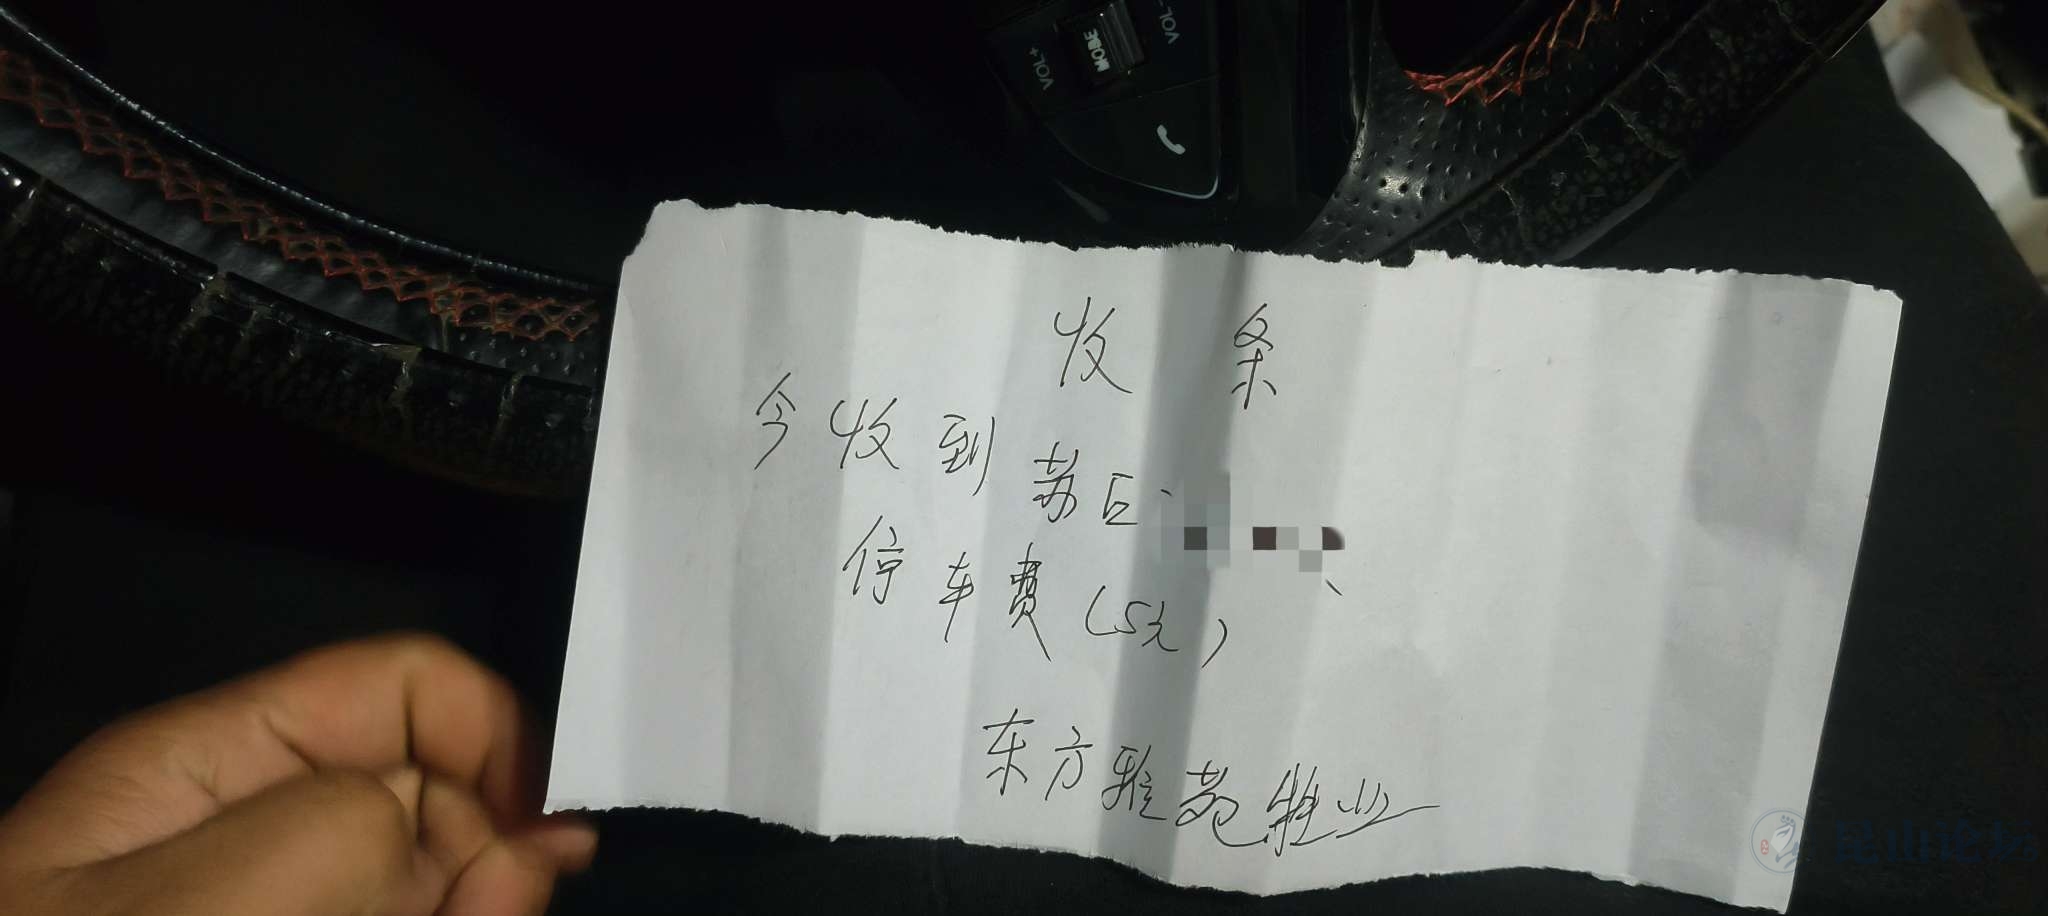 VOL+ MODE VOL-
收 条
今收到 苏E·
停车费(5元)
东方雅苑物业
昆山论坛